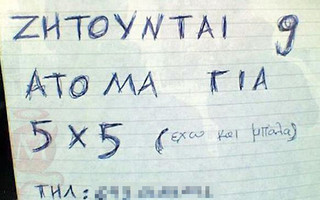 ΖΗΤΟΥΝΤΑΙ 9
ΑΤΟΜΑ ΓΙΑ
5 x 5 (εχω και μπαλα)
ΤΗΛ: